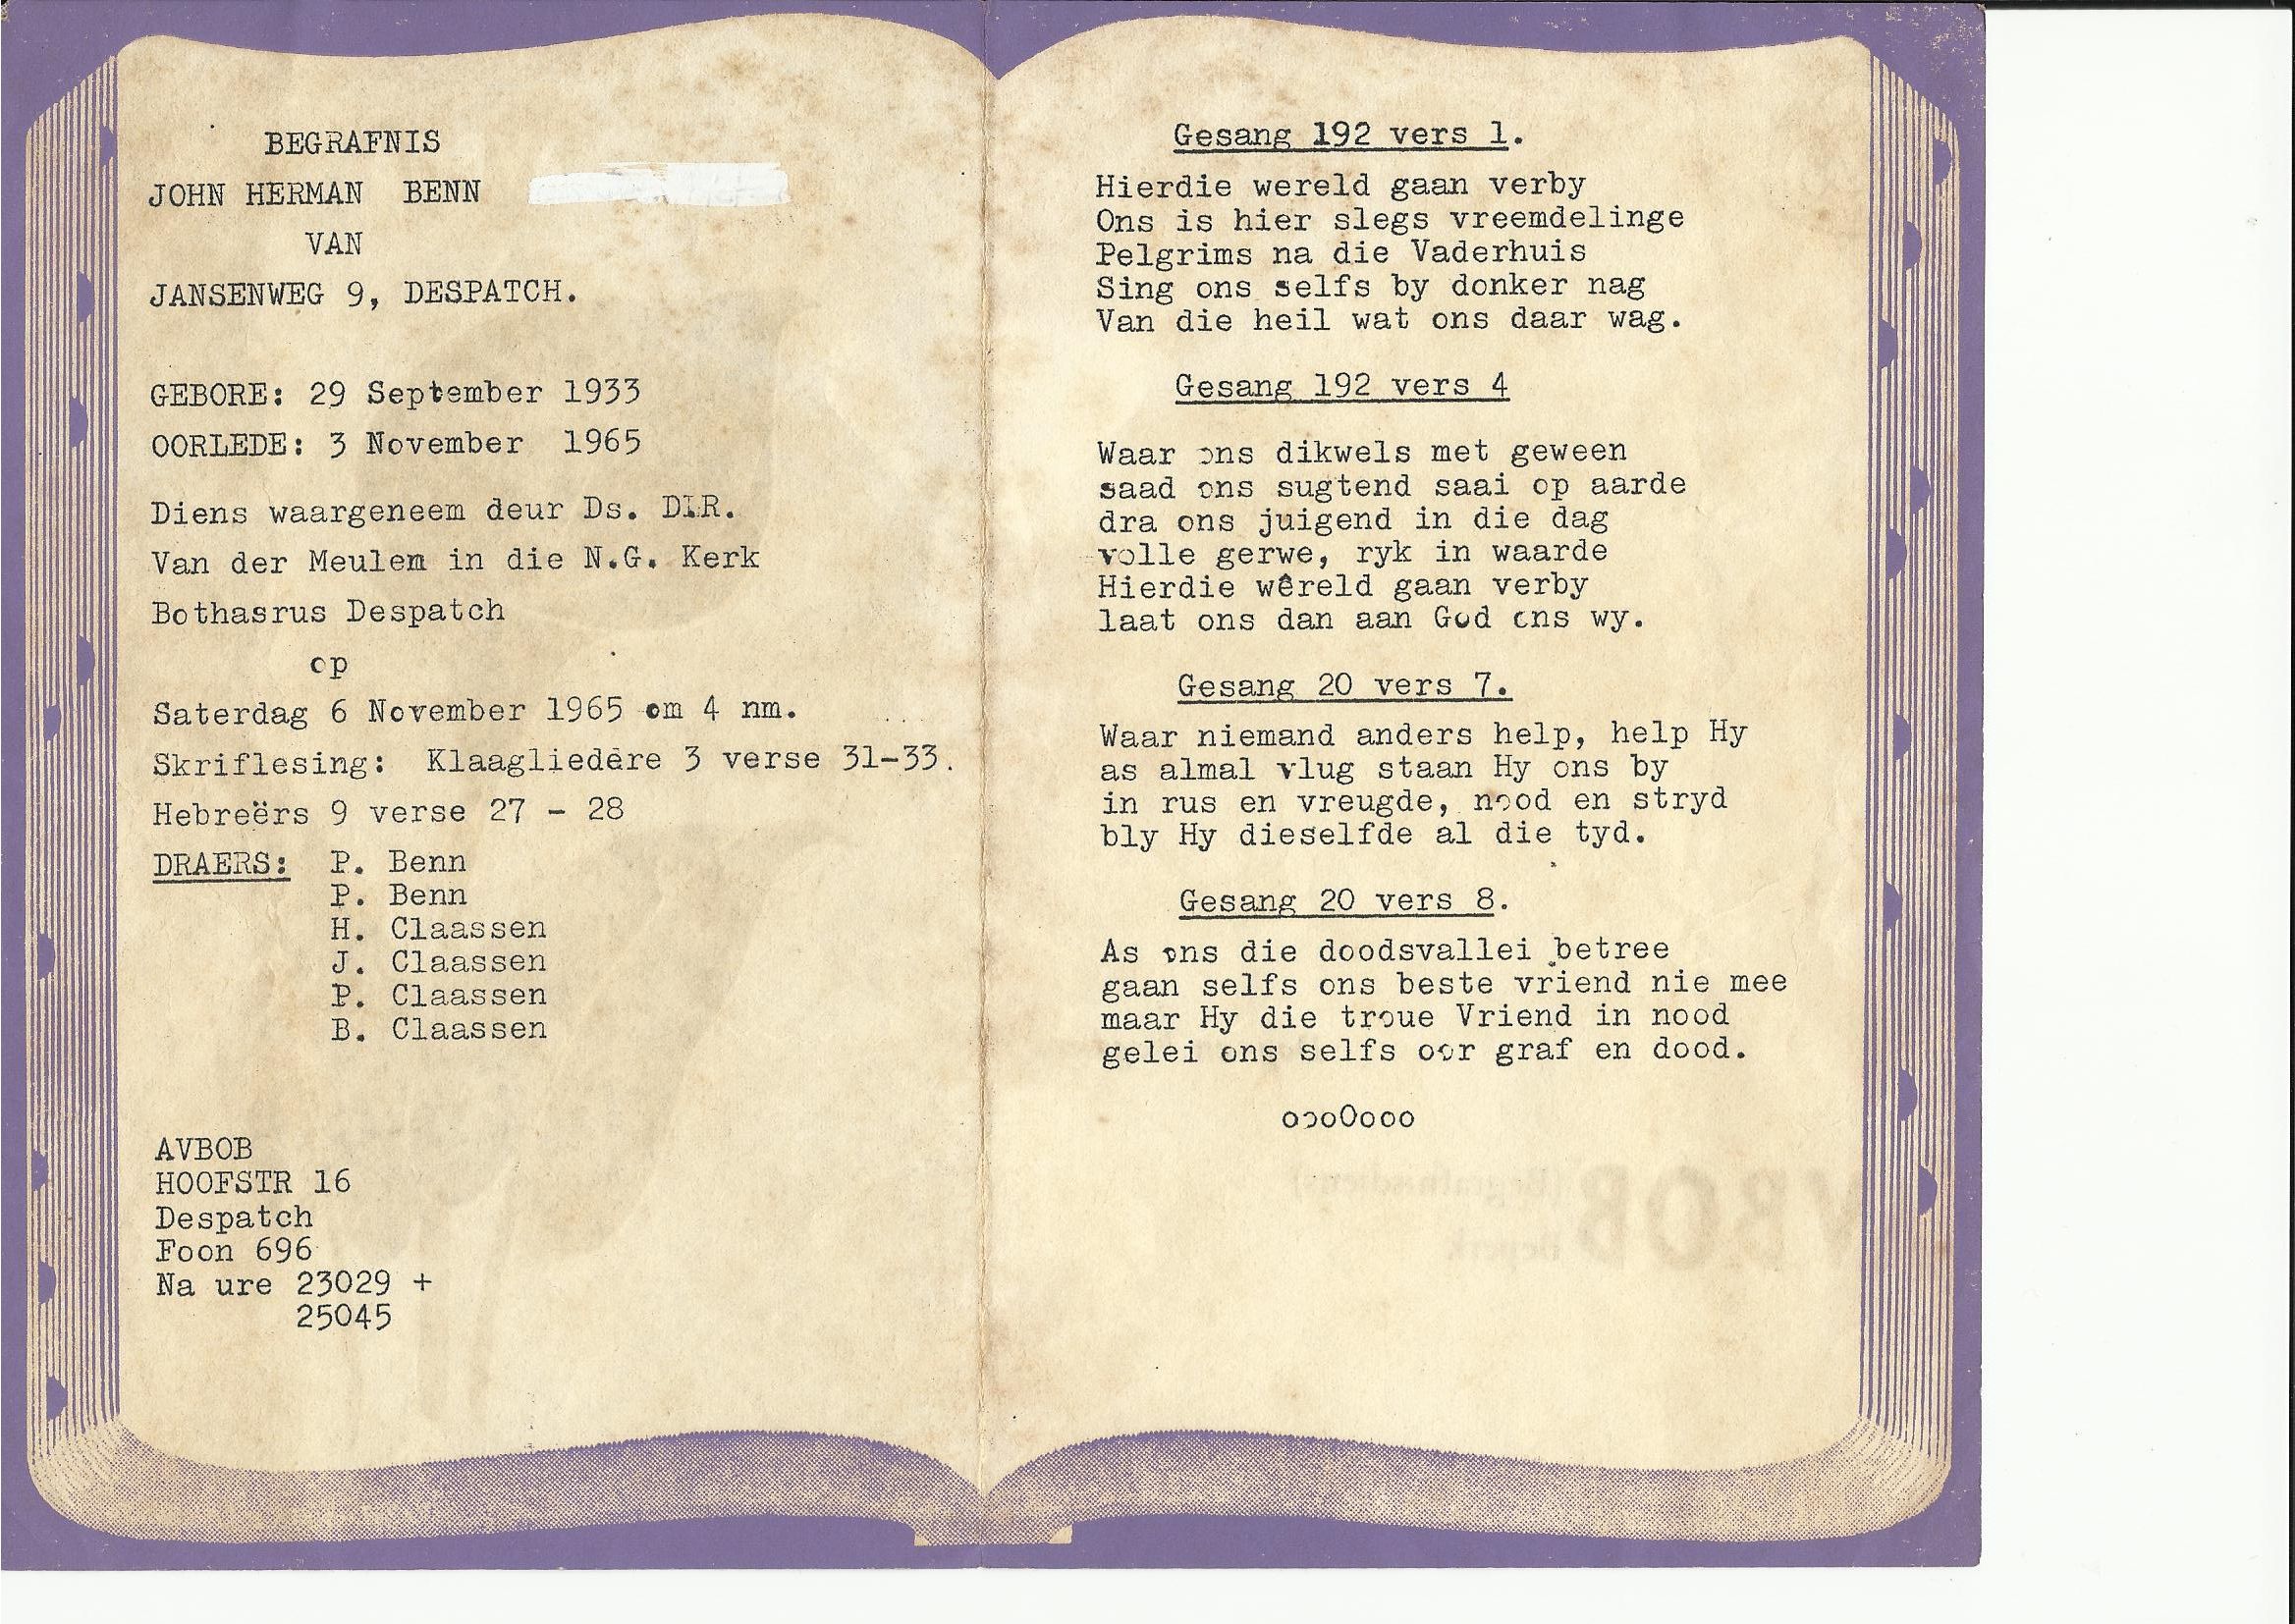 BEGRAFNIS
JOHN HERMAN BENN
VAN
JANSENWEG 9, DESPATCH.
GEBORE: 29 September 1933
OORLEDE: 3 November 1965
Diens waargeneem deur Ds. D.R.
Van der Meulem in die N.G. Kerk
Bothasrus Despatch
op
Saterdag 6 November 1965 om 4 nm.
Skriflesing: Klaagliedere 3 verse 31-33.
Hebreërs 9 verse 27 - 28
DRAERS: P. Benn
P. Benn
H. Claassen
J. Claassen
P. Claassen
B. Claassen
AVBOB
HOOFSTR 16
Despatch
Foon 696
Na ure 23029 +
25045
Gesang 192 vers 1.
Hierdie wereld gaan verby
Ons is hier slegs vreemdelinge
Pelgrims na die Vaderhuis
Sing ons selfs by donker nag
Van die heil wat ons daar wag.
Gesang 192 vers 4
Waar ons dikwels met geween
saad ons sugtend saai op aarde
dra ons juigend in die dag
volle gerwe, ryk in waarde
Hierdie wêreld gaan verby
laat ons dan aan God ons wy.
Gesang 20 vers 7.
Waar niemand anders help, help Hy
as almal vlug staan Hy ons by
in rus en vreugde, nood en stryd
bly Hy dieselfde al die tyd.
Gesang 20 vers 8.
As ons die doodsvallei betree
gaan selfs ons beste vriend nie mee
maar Hy die troue Vriend in nood
gelei ons selfs oor graf en dood.
oooOooo